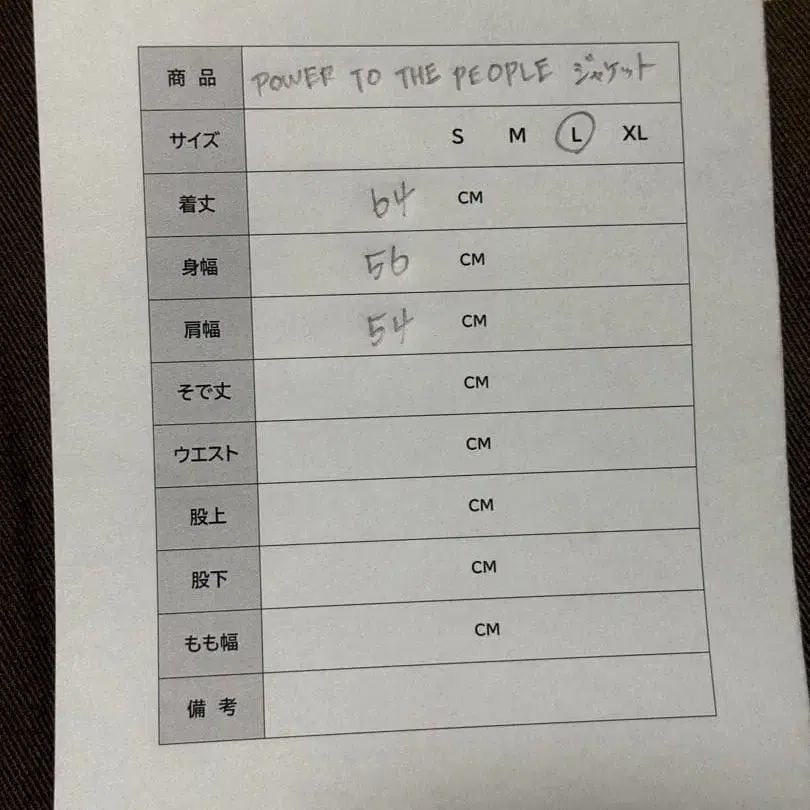 商品 POWER TO THE PEOPLE ジャケット
サイズ S M L XL
着丈 64 CM
身幅 56 CM
肩幅 54 CM
そで丈 CM
ウエスト CM
股上 CM
股下 CM
もも幅 CM
備考